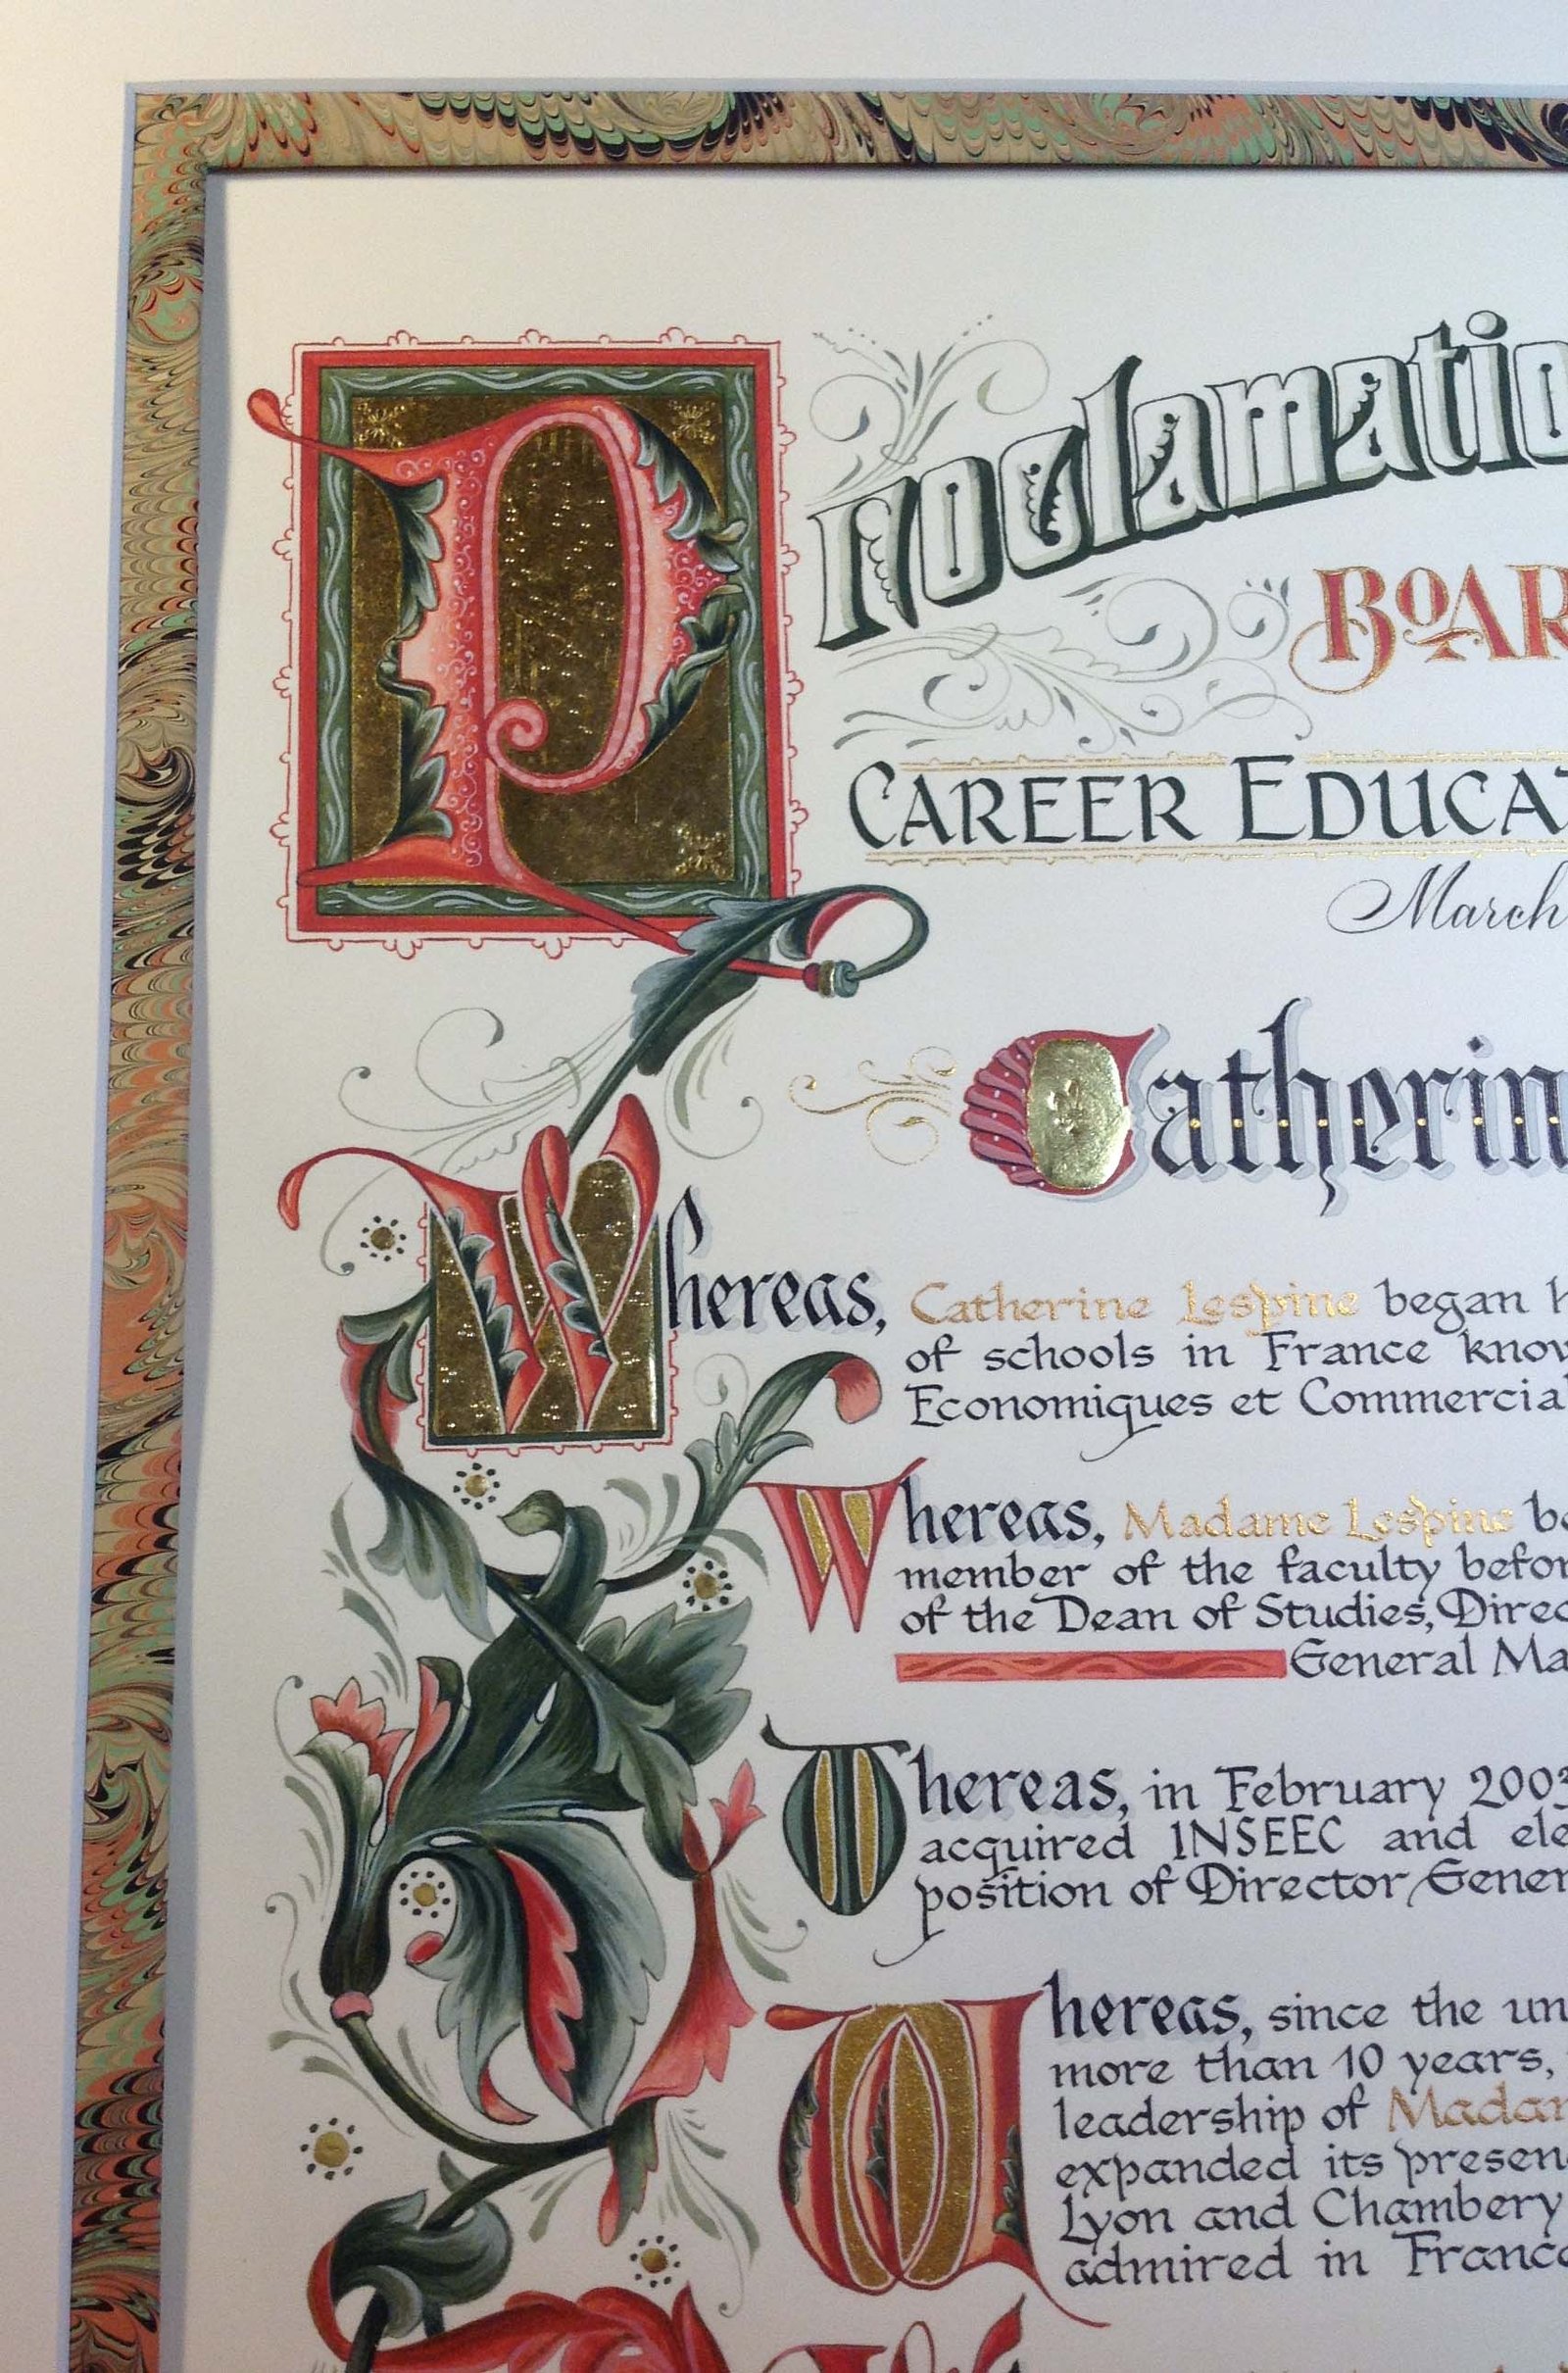 Proclamatio
BOAR
CAREER EDUCAT
March
Catherin
Whereas, Catherine Lespine began h
of schools in France know
Economiques et Commercial
Whereas, Madame Lespine be
member of the faculty befor
of the Dean of Studies, Direc
General Ma
Whereas, in February 2003
acquired INSEEC and ele
position of Director Gener
Whereas, since the un
more than 10 years,
leadership of Madam
expanded its presen
Lyon and Chambery
admired in France